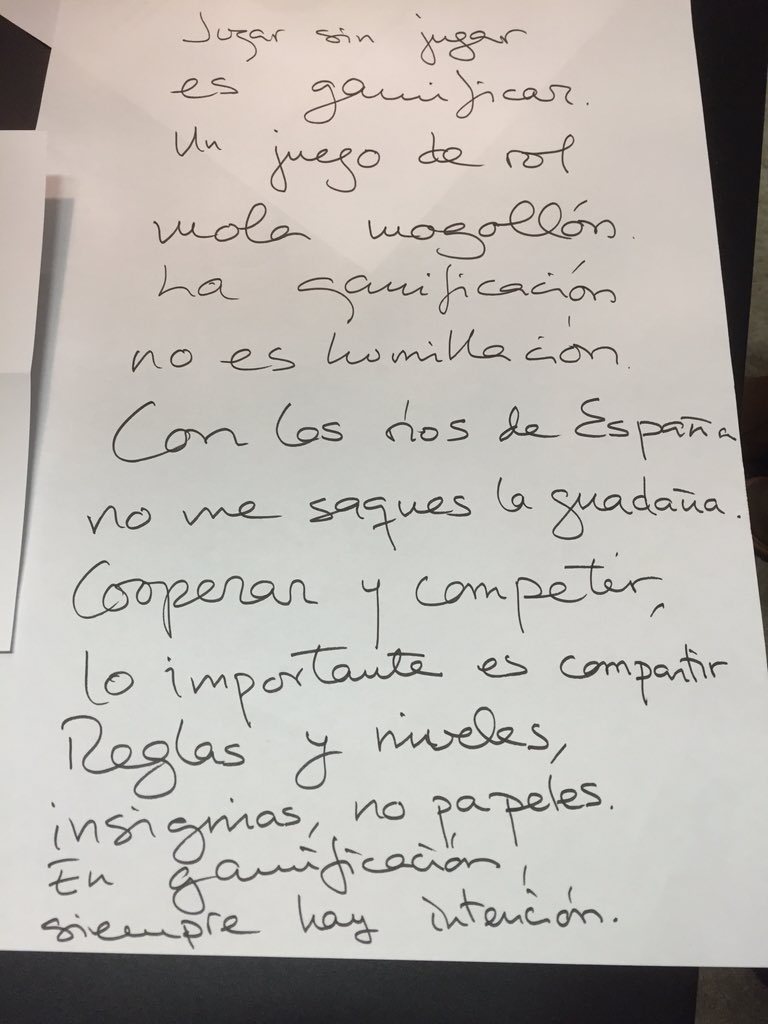 Jugar sin jugar
es gamificar.
Un juego de rol
mola mogollón.
La gamificación
no es humillación.
Con los ríos de España
no me saques la guadaña.
Cooperar y competir,
lo importante es compartir
Reglas y niveles,
insignias, no papeles.
En gamificación,
siempre hay intención.